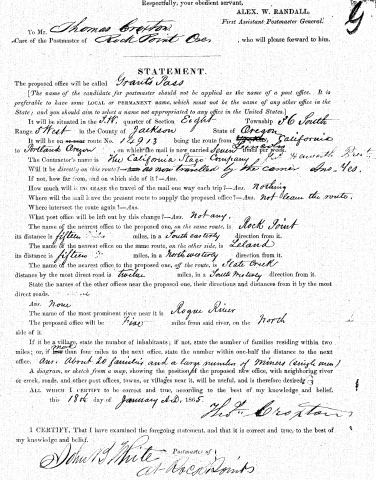 Respectfully, your obedient servant,
ALEX. W. RANDALL,
First Assistant Postmaster General.
To Mr. Thomas Croxton
Care of the Postmaster of Rock Point Oreg, who will please forward to him.
STATEMENT.
The proposed office will be called Grants Pass
(The name of the candidate for postmaster should not be applied as the name of a post office. It is
preferable to have some LOCAL or PERMANENT name, which must not be the name of any other office in the
State; and you should aim to select a name not appropriated to any office in the United States.)
It will be situated in the S.W. quarter of Section Eight, Township 36 South
Range 5 West, in the County of Jackson State of Oregon
It will be on route No. 14913 being the route from California
to Portland Oregon, on which the mail is now carried Seven times per week.
The Contractor's name is The California Stage Company
Will it be directly on this route?—as now travelled by the carrier Ans. Yes.
If not, how far from, and on which side of it?—Ans.
How much will it increase the travel of the mail one way each trip?—Ans. Nothing
Where will the mail leave the present route to supply the proposed office?—Ans. Not leave the route.
Where intersect the route again?—Ans.
What post office will be left out by this change?—Ans. Not any.
The name of the nearest office to the proposed one, on the same route, is Rock Point
its distance is fifteen miles, in a South easterly direction from it.
The name of the nearest office on the same route, on the other side, is Leland
its distance is fifteen miles, in a North westerly direction from it.
The name of the nearest office to the proposed one, off the route, is Slate Creek
distance by the most direct road is twelve miles, in a South Westerly direction from it.
State the names of other offices near the proposed one, their directions and distances from it by the most
direct roads.
Ans. None
The name of the most prominent river near it is Rogue River
The proposed office will be Five miles from said river, on the North
side of it.
If it be a village, state the number of inhabitants; if not, state the number of families residing within two
miles; or, if more than four miles to the next office, state the number within one-half the distance to the next
office. Ans. About 20 families and a large number of Miners (single men)
A diagram, or sketch from a map, showing the position of the proposed new office, with neighboring river
or creek, roads, and other post offices, towns, or villages near it, will be useful, and is therefore desired.
ALL WHICH I CERTIFY to be correct and true, according to the best of my knowledge and belief,
this 18th day of January A.D. 1865.
Thos. Croxton
I CERTIFY, That I have examined the foregoing statement, and that it is correct and true, to the best
of my knowledge and belief.
John B White Postmaster of
at Rock Point